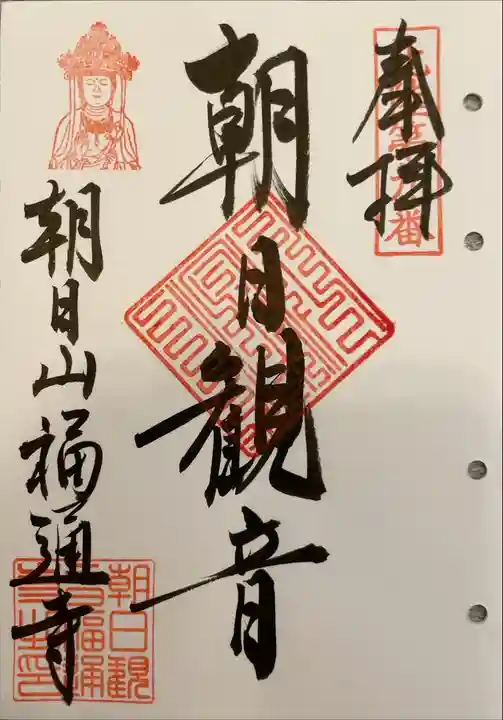 奉拝
朝日観音
朝日山福通寺
朝日観